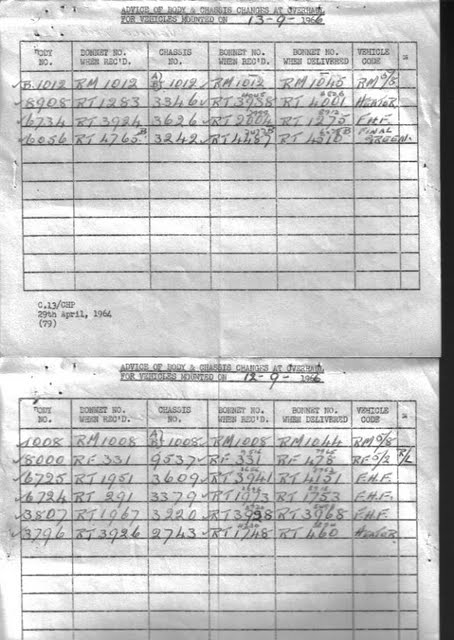 ADVICE OF BODY & CHASSIS CHANGES AT OVERHAUL
FOR VEHICLES MOUNTED ON 13-9- 1966
BODY NO. BONNET NO. WHEN REC'D. CHASSIS NO. BONNET NO. WHEN REC'D. BONNET NO. WHEN DELIVERED VEHICLE CODE
B.1012 RM 1012 1012 RM 1012 RM 1045 RM 5/5
8908 RT 1283 3346 RT 3938 RT 4001 HEATER
6734 RT 3924 3626 RT 2004 RT 1275 F.H.F.
6056 RT 4765 3242 RT 4487 RT 4510 FINAL GREEN.
C.13/CHP
29th April, 1964
(79)
ADVICE OF BODY & CHASSIS CHANGES AT OVERHAUL
FOR VEHICLES MOUNTED ON 12-9- 1966
BODY NO. BONNET NO. WHEN REC'D. CHASSIS NO. BONNET NO. WHEN REC'D. BONNET NO. WHEN DELIVERED VEHICLE CODE
1008 RM 1008 1008 RM 1008 RM 1044 RM 5/8
8000 RF 331 9537 RF 331 RF 478 RF 5/2 R/L
6725 RT 1951 3609 RT 3941 RT 4151 F.H.F.
6724 RT 291 3379 RT 1973 RT 1753 F.H.F.
3807 RT 1967 3220 RT 3998 RT 3968 F.H.F.
3796 RT 3926 2743 RT 1748 RT 460 HEATER